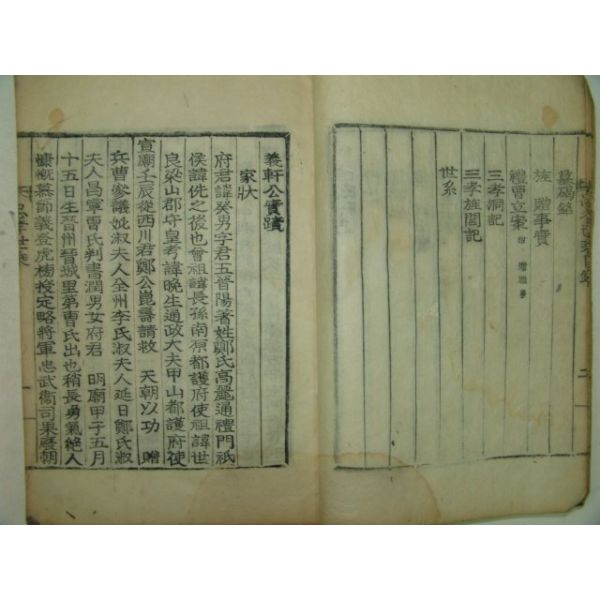 墓碣銘
旌 贈事實
禮曹立案
三孝洞記
三孝旌閭記
世系
二
義軒公實蹟
家狀
府君諱癸男字君五晉陽著姓鄭氏高麗通禮門祗
侯諱侁之後也曾祖諱長孫南原都護府使祖諱世
良梁山郡守皇考諱晩生通政大夫甲山都護府使
宣廟壬辰從西川君鄭公崑壽請救 天朝以功 贈
兵曹參議妣淑夫人全州李氏淑夫人延日鄭氏淑
夫人昌寧曹氏判書潤男女府君 明廟甲子五月
十五日生晉州晉城里第曹氏出也稍長勇氣絶人
慷慨慕節義登虎榜授定略將軍忠武衛司果歷朝
一